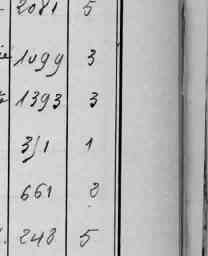 2081 5
1099 3
1393 3
351 1
661 8
248 5